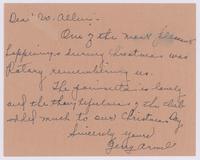 Dear Mr. Allen:-
One of the most pleasant
happenings during Christmas was
Rotary remembering us.
The poinsettia is lovely
and the thoughtfulness of the club
added much to our Christmas Day.
Sincerely yours